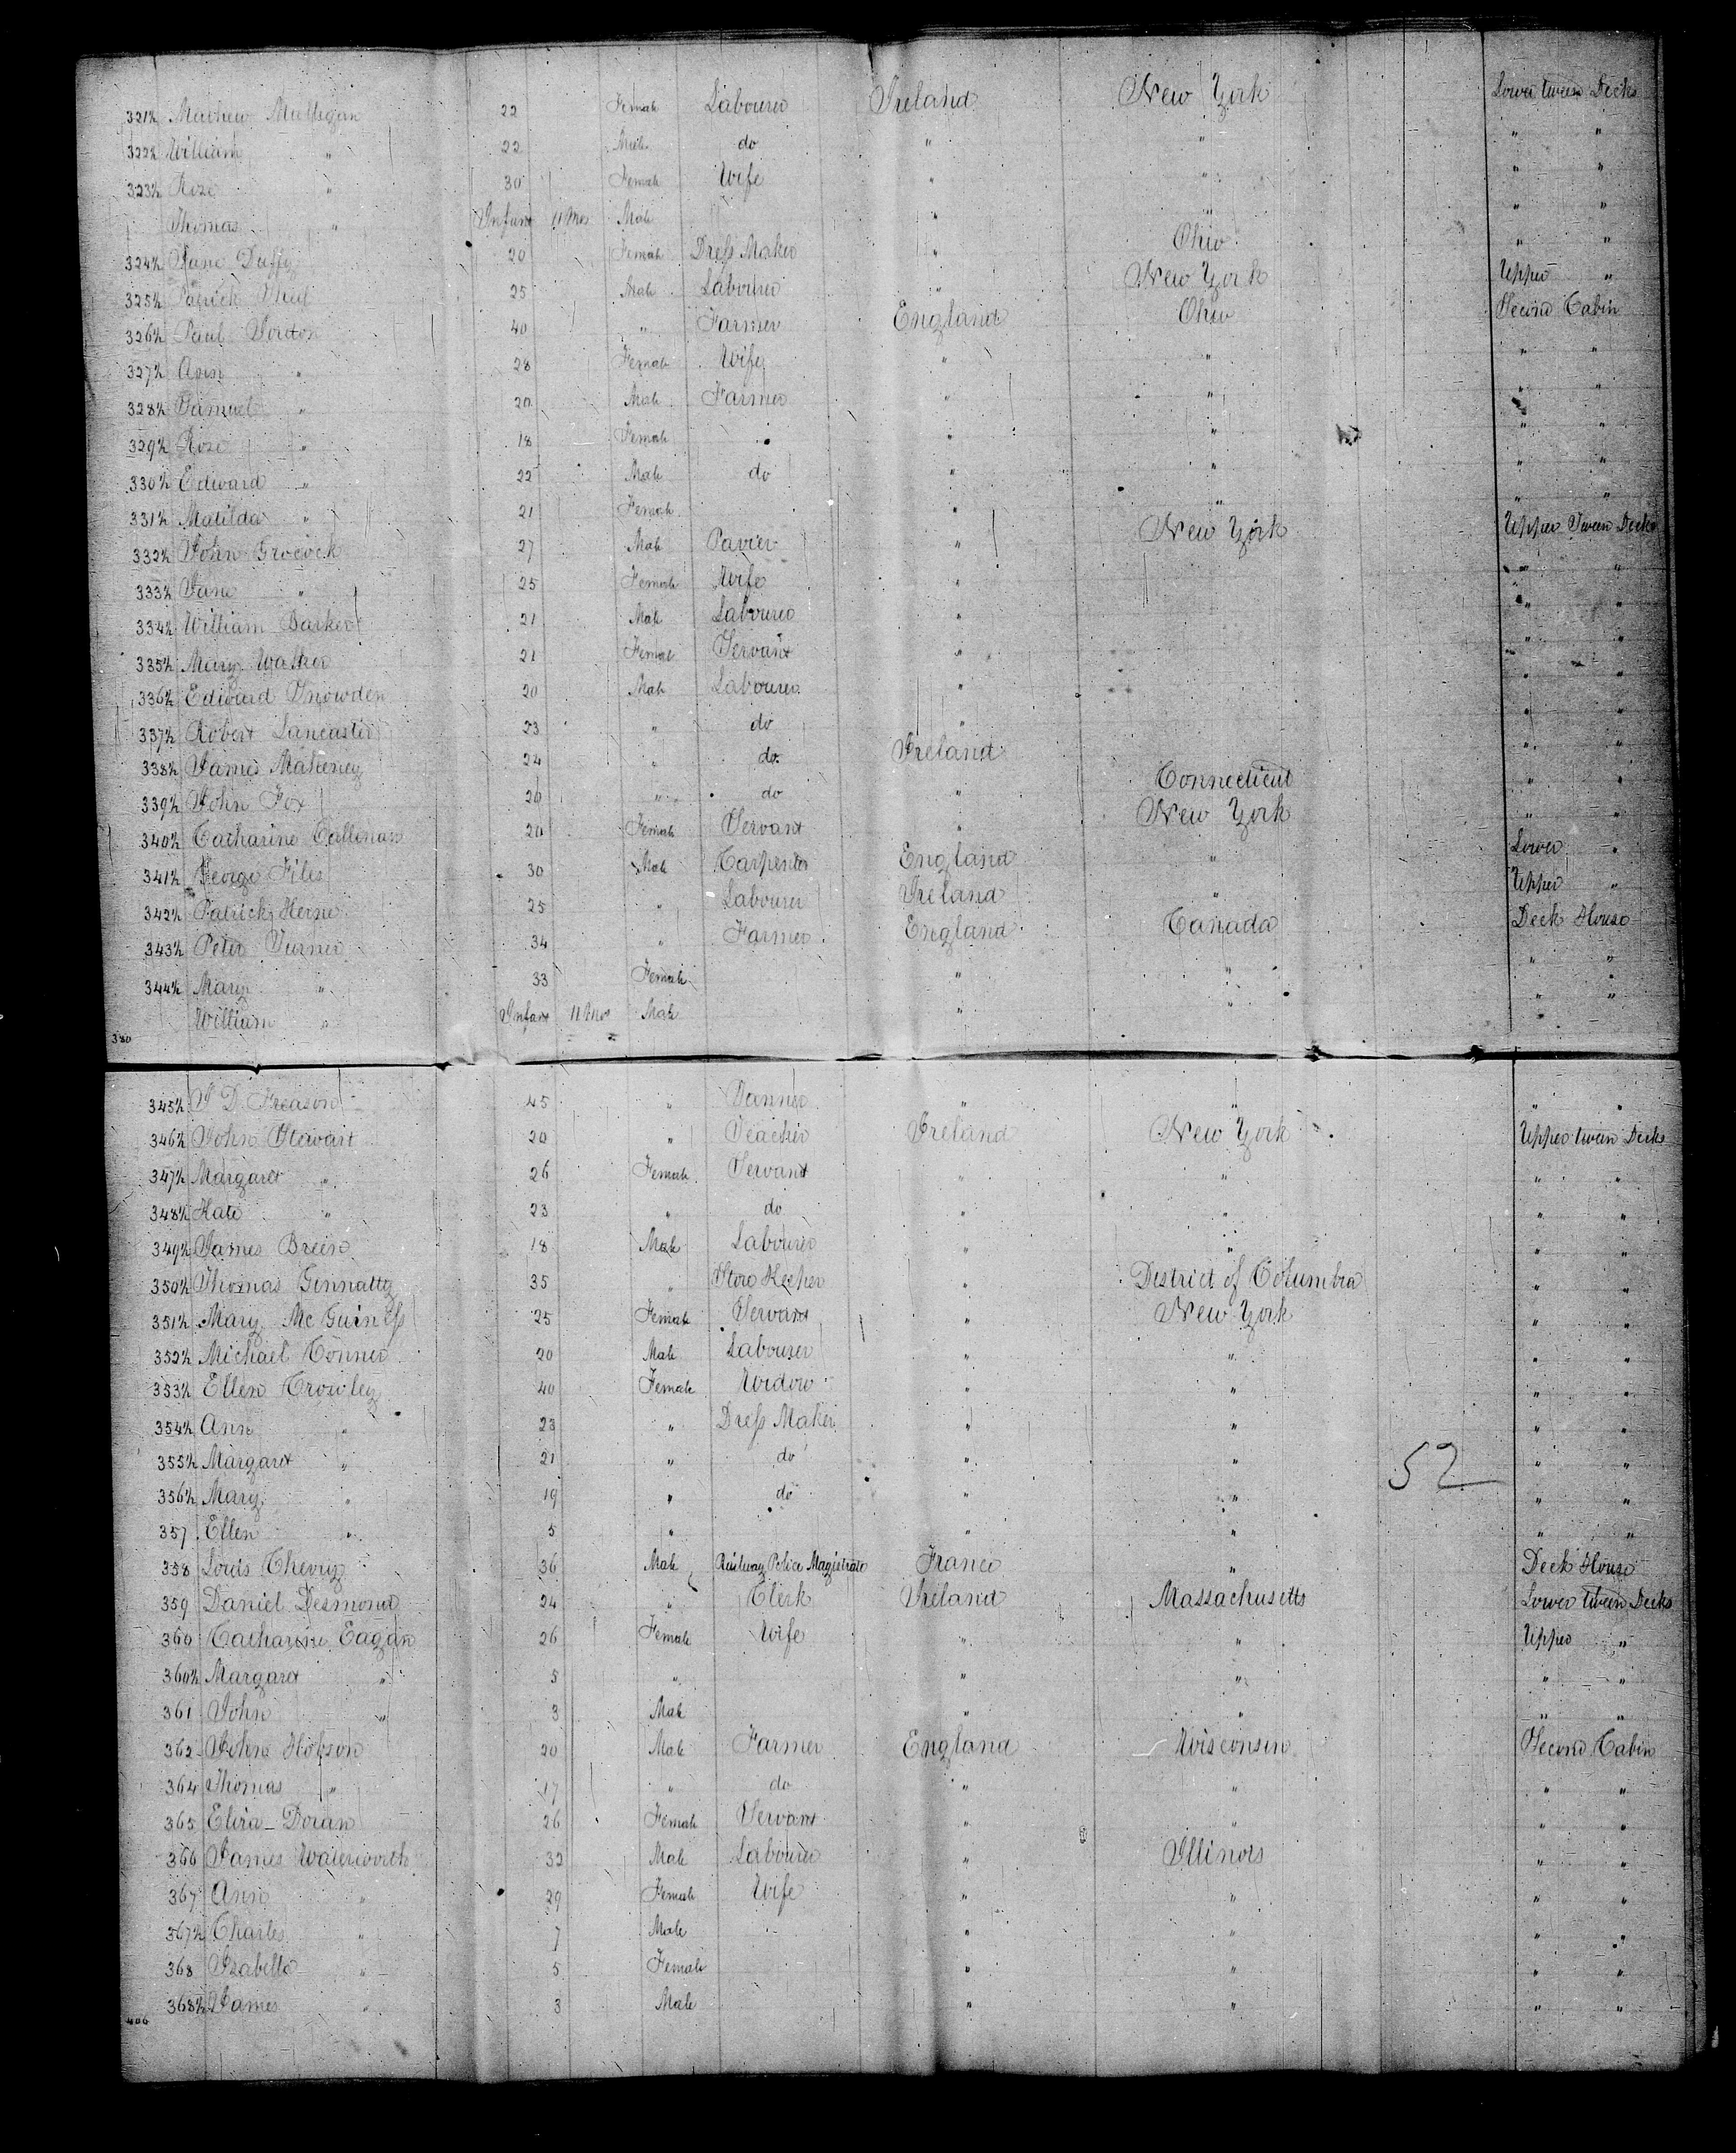 321½ Mathew Mulligan 22 Female Labourer Ireland New York Lower tween Decks
322½ William " 22 Male do " " " "
323½ Rose " 30 Female Wife " " " "
Thomas " Infant 11 Mos Male " " " "
324½ Jane Duffy 20 Female Dress Maker " Ohio " "
325½ Patrick 25 Male Labourer " New York Upper "
326½ Paul 40 " Farmer England Ohio Second Cabin
327½ Ann " 28 Female Wife " " " "
328½ Samuel " 20 Male Farmer " " " "
329½ Rose " 18 Female " " " "
330½ Edward " 22 Male do " " " "
331½ Matilda " 21 Female " " " "
332½ John Grocock 27 Male Pavier " New York Upper Tween Decks
333½ Jane " 25 Female Wife " " "
334½ William Barker 21 Male Labourer " " "
335½ Mary Walker 21 Female Servant " " "
336½ Edward Snowden 20 Male Labourer " " "
337½ Robert Lancaster 23 " do " " "
338½ James Maheney 24 " do Ireland " "
339½ John Fox 20 " do " Connecticut " "
340½ Catharine Callinan 20 Female Servant " New York " "
341½ George Files 30 Male Carpenter England " Lower "
342½ Patrick Herne 25 " Labourer Ireland " Upper "
343½ Peter Turner 34 " Farmer England Canada Deck House
344½ Mary " 33 Female " " " "
William " Infant 11 Mos Male " " " "
380
345½ J D Freason 45 " Tanner " " " "
346½ John Stewart 20 " Teacher Ireland New York Upper tween Decks
347½ Margaret " 26 Female Servant " " " "
348½ Kate " 23 " do " " " "
349½ James Breen 18 Male Labourer " " " "
350½ Thomas Ginnatty 35 " Store Keeper " District of Columbia " "
351½ Mary McGuiness 25 Female Servant " New York " "
352½ Michael Conner 20 Male Labourer " " " "
353½ Ellen Crowley 40 Female Widow " " " "
354½ Ann " 23 " Dress Maker " " " "
355½ Margaret " 21 " do " " " "
52
356½ Mary " 19 " do " " " "
357 Ellen " 5 " " " " "
358 Louis Chevry 36 Male Railway Police Magistrate France " Deck House
359 Daniel Desmond 24 " Clerk Ireland Massachusetts Lower tween Decks
360 Catharine Eagan 26 Female Wife " " Upper "
360½ Margaret " 5 " " " " "
361 John " 3 Male " " " "
362 John Hobson 20 Male Farmer England Wisconsin Second Cabin
364 Thomas " 17 " do " " " "
365 Eliza Doran 26 Female Servant " " " "
366 James Waterworth 32 Male Labourer " Illinois " "
367 Ann " 29 Female Wife " " " "
367½ Charles " 7 Male " " " "
368 Isabella " 5 Female " " " "
368½ James " 3 Male " " " "
406